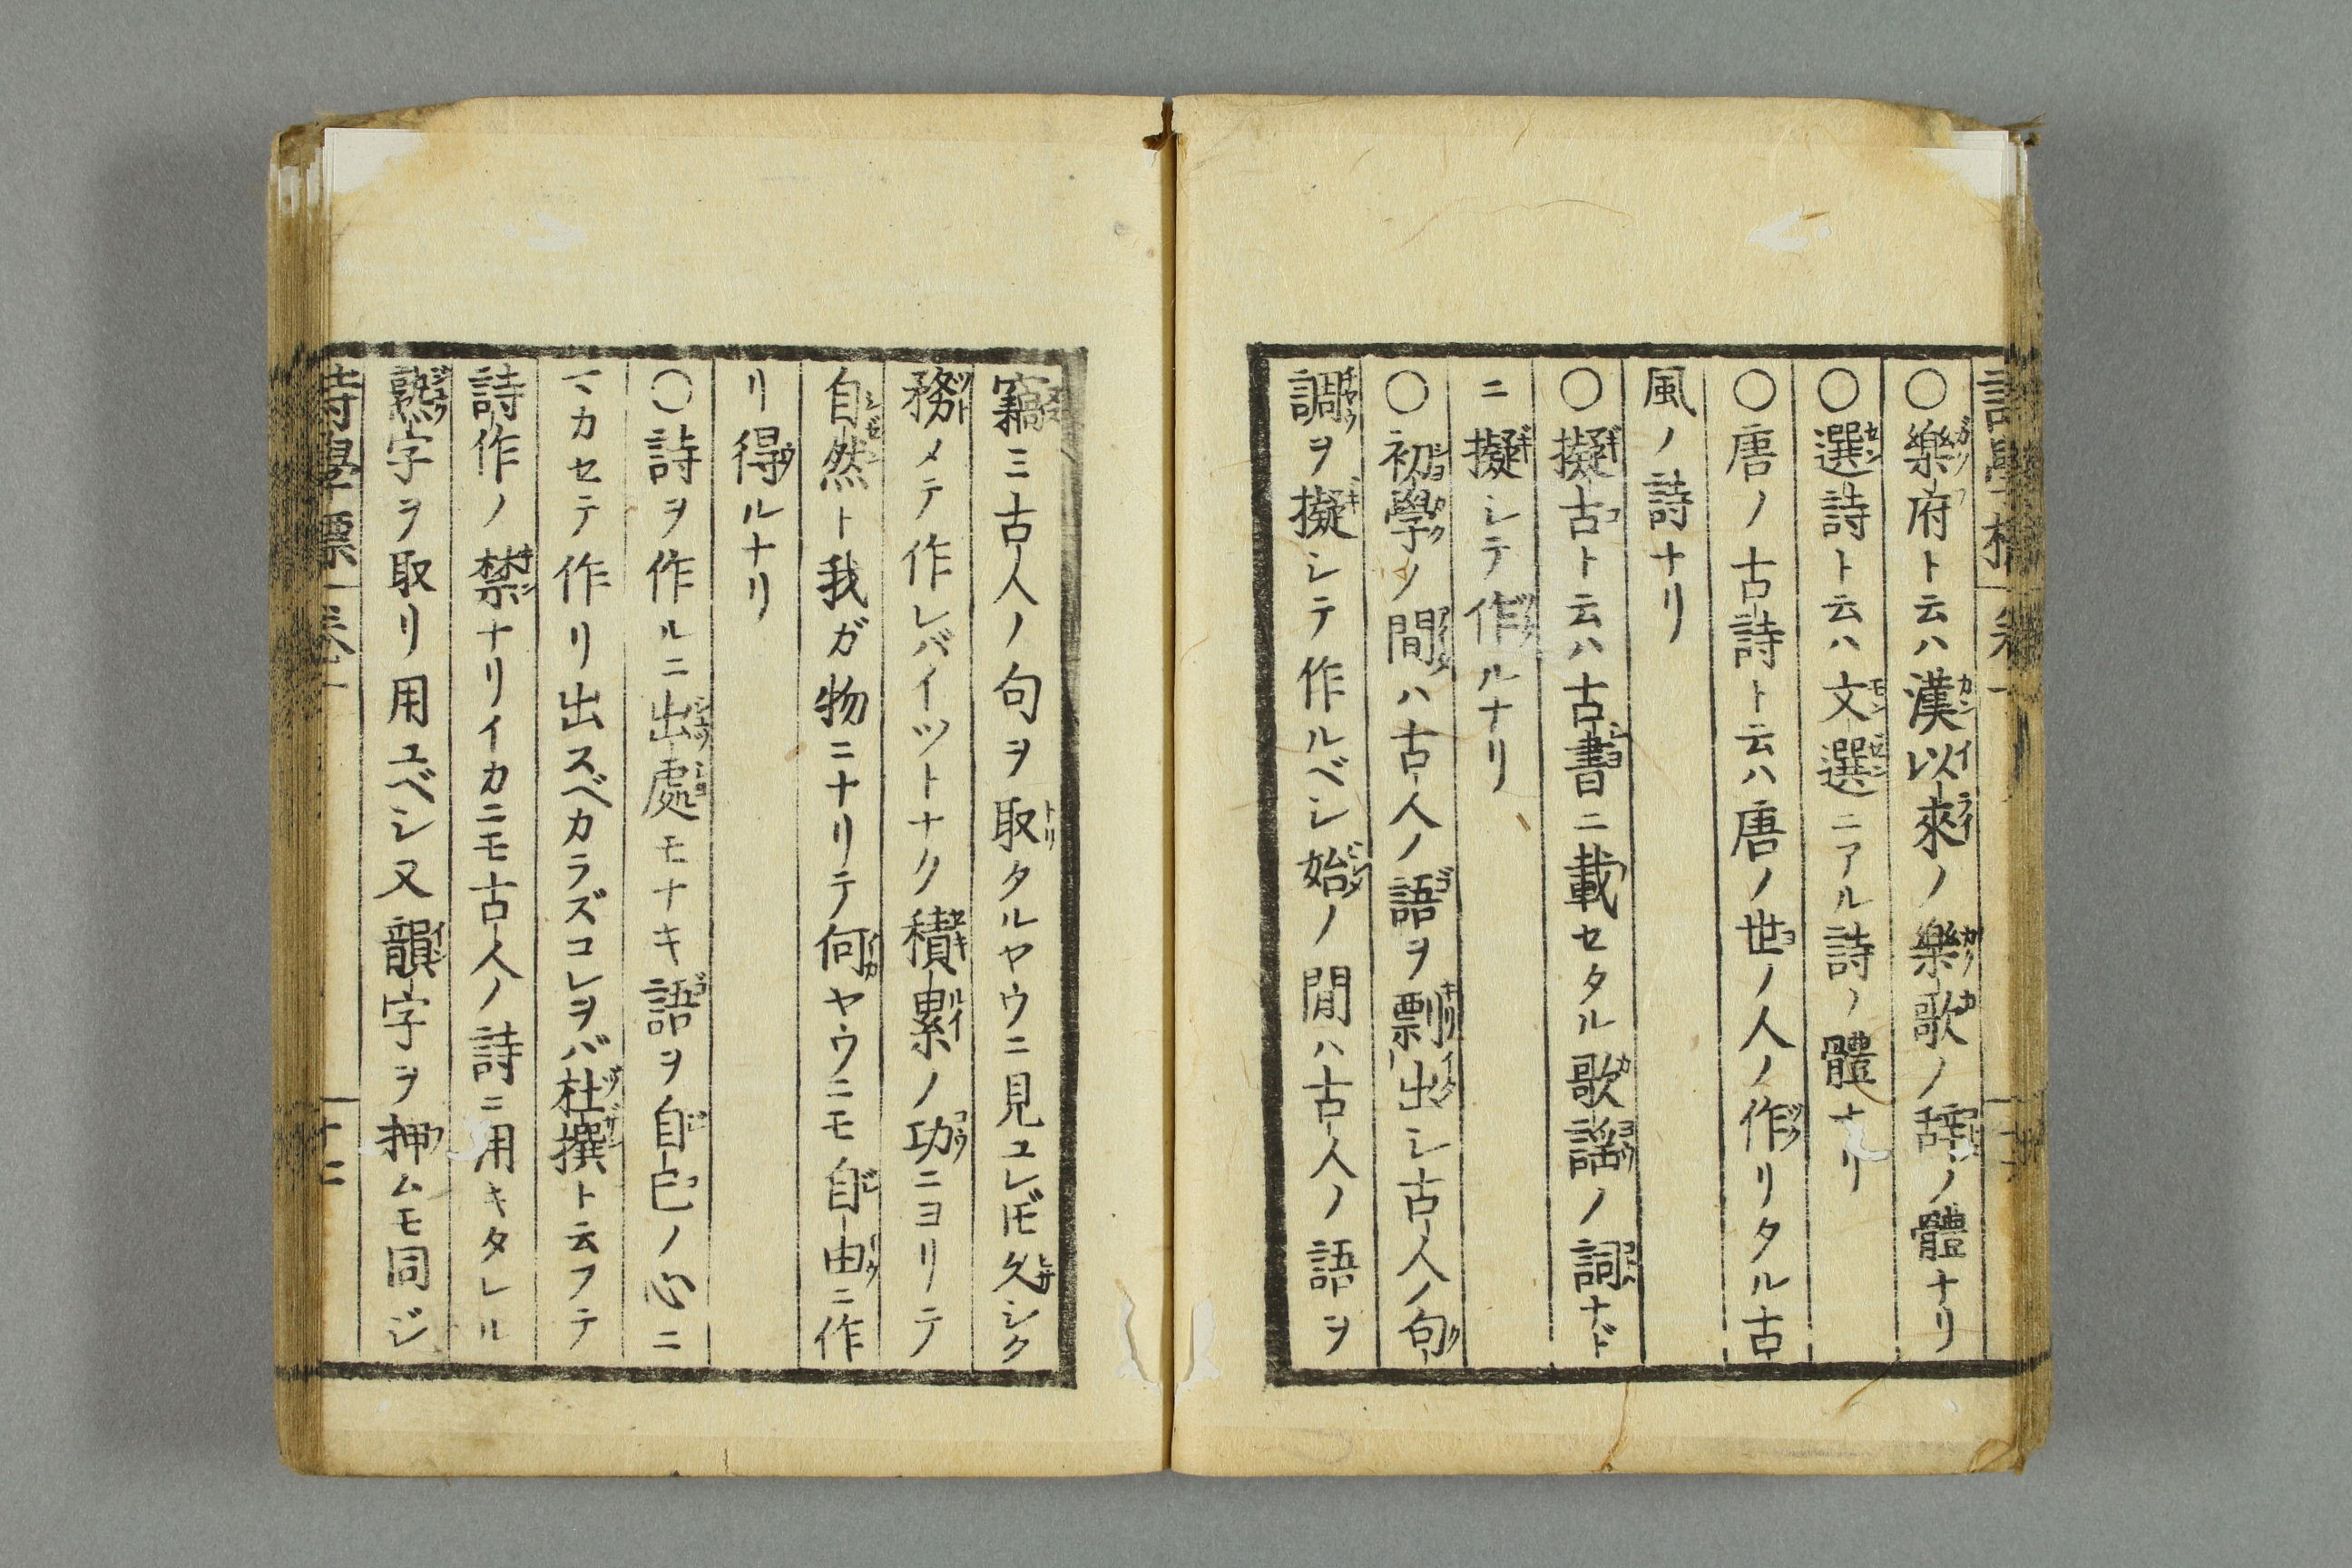 ○樂府ト云ハ漢以來ノ樂歌ノ辭ノ體ナリ
○選詩ト云ハ文選ニアル詩ノ體ナリ
○唐ノ古詩ト云ハ唐ノ世ノ人ノ作リタル古
風ノ詩ナリ
○擬古ト云ハ古書ニ載セタル歌謡ノ詞ナド
ニ擬シテ作ルナリ
○初學ノ間ハ古人ノ語ヲ剽出シ古人ノ句
調ヲ擬シテ作ルベシ始ノ間ハ古人ノ語ヲ
竊ミ古人ノ句ヲ取タルヤウニ見ユレ𪜈久シク
務メテ作レバイツトナク積累ノ功ニヨリテ
自然ト我ガ物ニナリテ何ヤウニモ自由ニ作
リ得ルナリ
○詩ヲ作ルニ出處モナキ語ヲ自己ノ心ニ
マカセテ作リ出スベカラズコレヲバ杜撰ト云フテ
詩作ノ禁ナリイカニモ古人ノ詩ニ用キタレル
熟字ヲ取リ用ユベシ又韻字ヲ押ムモ同ジ
詩學標 卷一 十二